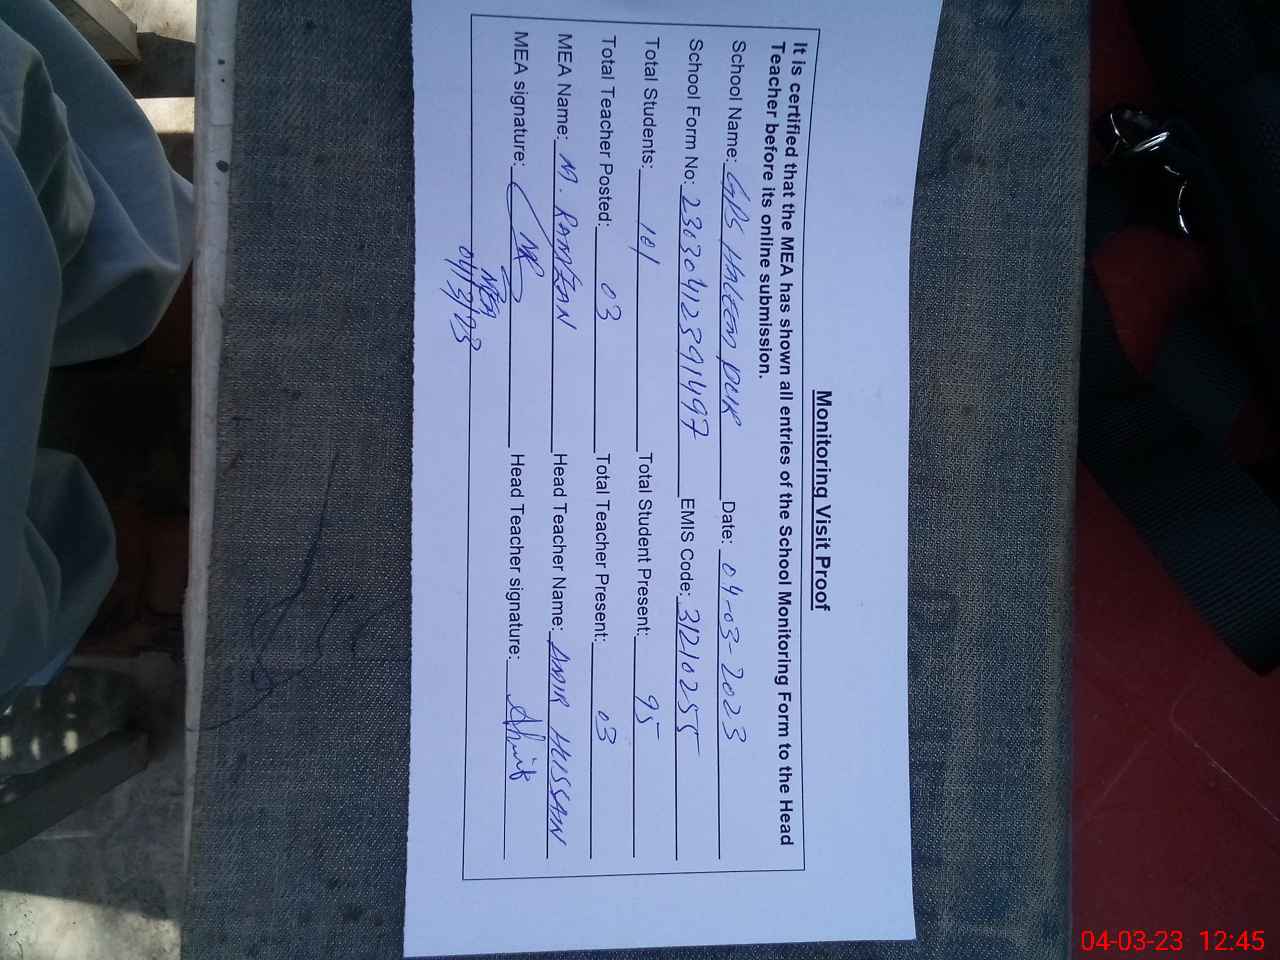 Monitoring Visit Proof
It is certified that the MEA has shown all entries of the School Monitoring Form to the Head
Teacher before its online submission.
School Name: GPS Haleem pur Date: 04-03-2023
School Form No: 23030412391497 EMIS Code: 31210255
Total Students: 101 Total Student Present: 95
Total Teacher Posted: 03 Total Teacher Present: 03
MEA Name: M. RAMZAN Head Teacher Name: AMIR HUSSAN
MEA signature: MR Head Teacher signature:
MEA
04/3/23
04-03-23 12:45